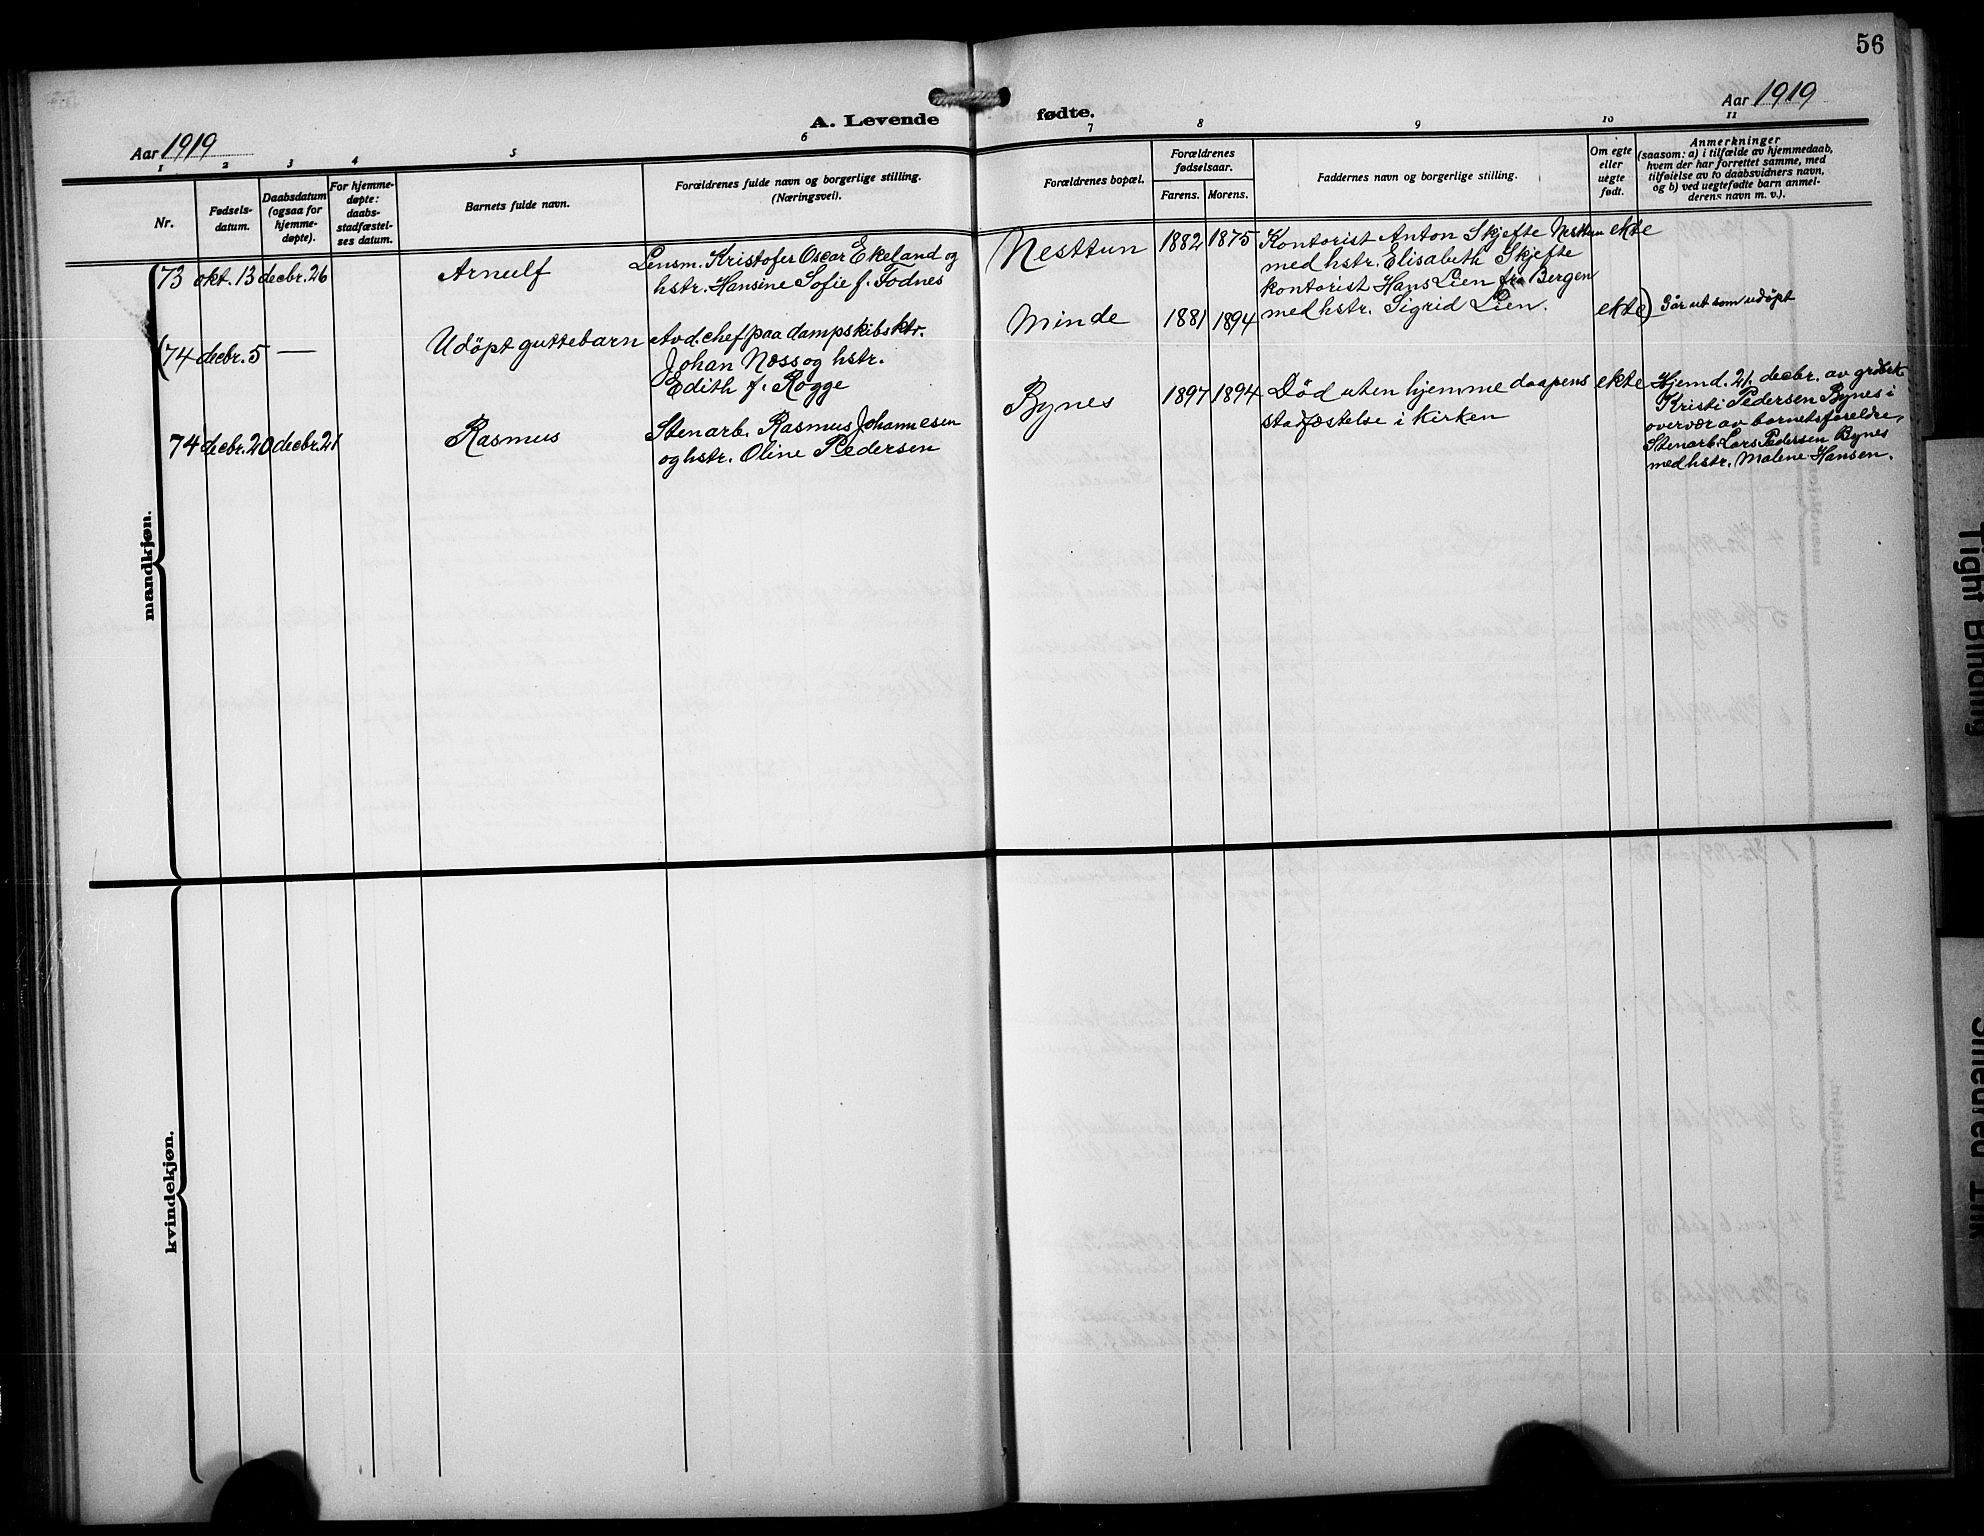 56
Aar 1919
A. Levende fødte.
Aar 1919
1 2 3 4 5 6 7 8 9 10 11
Nr.
Fødsels-
datum.
Daabsdatum
(ogsaa for
hjemme-
døpte).
For hjemme-
døpte:
daabs-
stadfæstel-
ses datum.
Barnets fulde navn.
Forældrenes fulde navn og borgerlige stilling.
(Næringsvei).
Forældrenes bopæl.
Forældrenes
fødselsaar.
Farens. Morens.
Faddernes navn og borgerlige stilling.
Om egte
eller
uegte
født.
Anmerkninger
(saasom: a) i tilfælde av hjemmedaab,
hvem der har forrettet samme, med
tilføielse av to daabsvidners navn,
og b) ved uegtefødte barn anmel-
derens navn m. v.).
mandkjøn.
73 okt. 13 decbr. 26
Arnulf
Lensm. Kristofer Oscar Ekeland og
hstr. Hansine Sofie f. Todnes
Nesttun 1882 1875
Kontorist Anton Skjefte Nesttun
med hstr. Elisabeth Skjefte
kontorist Hans Lien fra Bergen
med hstr. Sigrid Lien.
ekte
(74 decbr. 5 —
Udöpt guttebarn
Avd. chef paa dampskibsktr.
Johan Næss og hstr.
Edith f. Rogge
Minde 1881 1894
ekte)
Går ut som udöpt
74 decbr. 20 decbr. 21
Rasmus
Stenarb. Rasmus Johannesen
og hstr. Oline Pedersen
Bynes 1897 1894
Död uten hjemmedaapens
stadfæstelse i kirken
ekte
Hjemd. 21. decbr. av
Kristi Pedersen Bynes i
overvær av barnets foreldre,
Stenarb. Lars Pedersen Bynes
med hstr. Malene Hansen.
kvindekjøn.
Tight Binding
Smeared Ink